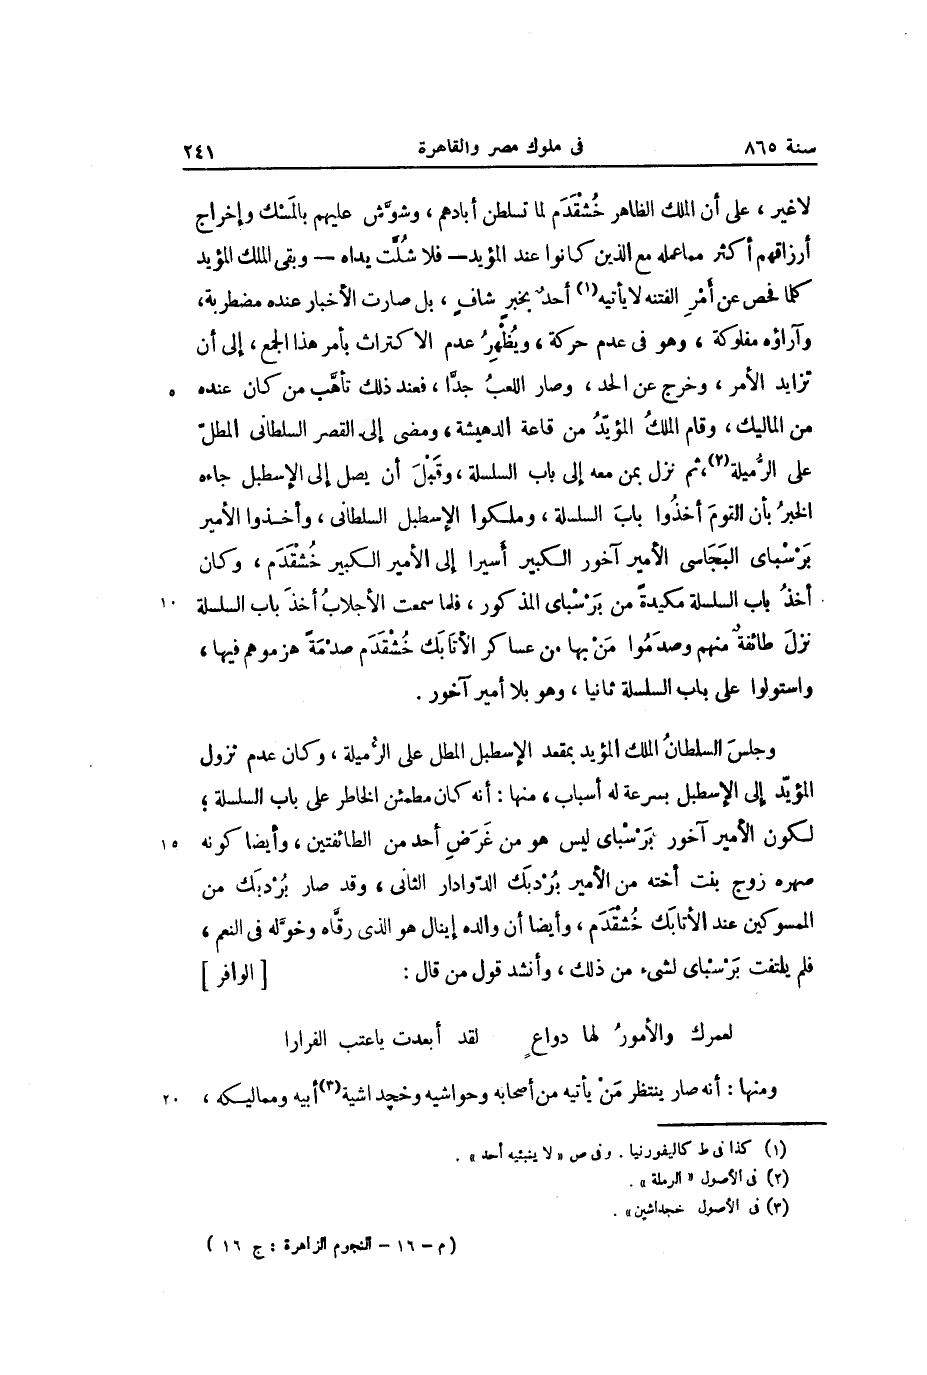 سنة ٨٦٥ فى ملوك مصر والقاهرة ٢٤١
لاغير ، على أن الملك الظاهر خُشْقَدَم لما تسلطن أبادهم ، وشوَّش عليهم بالمَسْك وإخراج
أرزاقهم أكثر مماعمله مع الذين كانوا عند المؤيد — فلا شُلَّت يداه — وبقى الملك المؤيد
كلما فحص عن أَمْرِ الفتنه لايأتيه(١) أحدٌ بخبرٍ شافٍ ، بل صارت الأخبار عنده مضطربة،
وآراؤه مفلوكة ، وهو فى عدم حركة ، ويُظْهِرُ عدم الاكتراث بأمر هذا الجمع ، إلى أن
تزايد الأمر ، وخرج عن الحد ، وصار اللعبُ جدًّا ، فعند ذلك تأهَّب من كان عنده ٥
من المماليك ، وقام الملكُ المؤيّدُ من قاعة الدهيشة ، ومضى إلى القصر السلطانى المطلّ
على الرُّميلة(٢)،ثم نزل بمن معه إلى باب السلسلة ، وقَبْلَ أن يصل إلى الإسطبل جاءه
الخبرُ بأن القومَ أخذُوا بابَ السلسلة ، وملكوا الإسطبل السلطانى ، وأخذوا الأمير
بَرْسْباى البَجَاسى الأمير آخور الكبير أسيرا إلى الأمير الكبير خُشْقَدَم ، وكان
أخذُ باب السلسلة مكيدةً من بَرْسْباى المذكور ، فلما سمعت الأجلابُ أخذَ باب السلسلة ١٠
نزلَ طائفةٌ منهم وصدَمُوا مَنْ بها من عساكر الأتابَك خُشْقَدَم صدْمَةً هزموهم فيها ،
واستولوا على باب السلسلة ثانيا ، وهو بلا أمير آخور .
وجلسَ السلطانُ الملك المؤيد بمقعد الإسطبل المطل على الرُّميلة ، وكان عدم نزول
المؤيّد إلى الإسطبل بسرعة له أسباب ، منها : أنه كان مطمئن الخاطر على باب السلسلة ؛
لكون الأمير آخور بَرْسْباى ليس هو من غَرَضِ أحد من الطائفتين ، وأيضا كونه ١٥
صهره زوج بنت أخته من الأمير بُرْدبَك الدّوادار الثانى ، وقد صار بُرْدبَك من
الممسوكين عند الأتابَك خُشْقَدَم ، وأيضا أن والده إينال هو الذى رقَّاه وخوَّله فى النعم ،
فلم يلتفت بَرْسْباى لشىء من ذلك ، وأنشد قول من قال : [ الوافر ]
لعمرك والأمورُ لها دواعٍ لقد أبعدت ياعتب الفرارا
ومنها : أنه صار ينتظر مَنْ يأتيه من أصحابه وحواشيه وخچداشية(٣) أبيه ومماليكه ، ٢٠
(١) كذا فى ط كاليفورنيا . وفى ص « لا ينبئيه أحد » .
(٢) فى الأصول « الرملة » .
(٣) فى الأصول خجداشين» .
( م – ١٦ – النجوم الزاهرة : ج ١٦ )